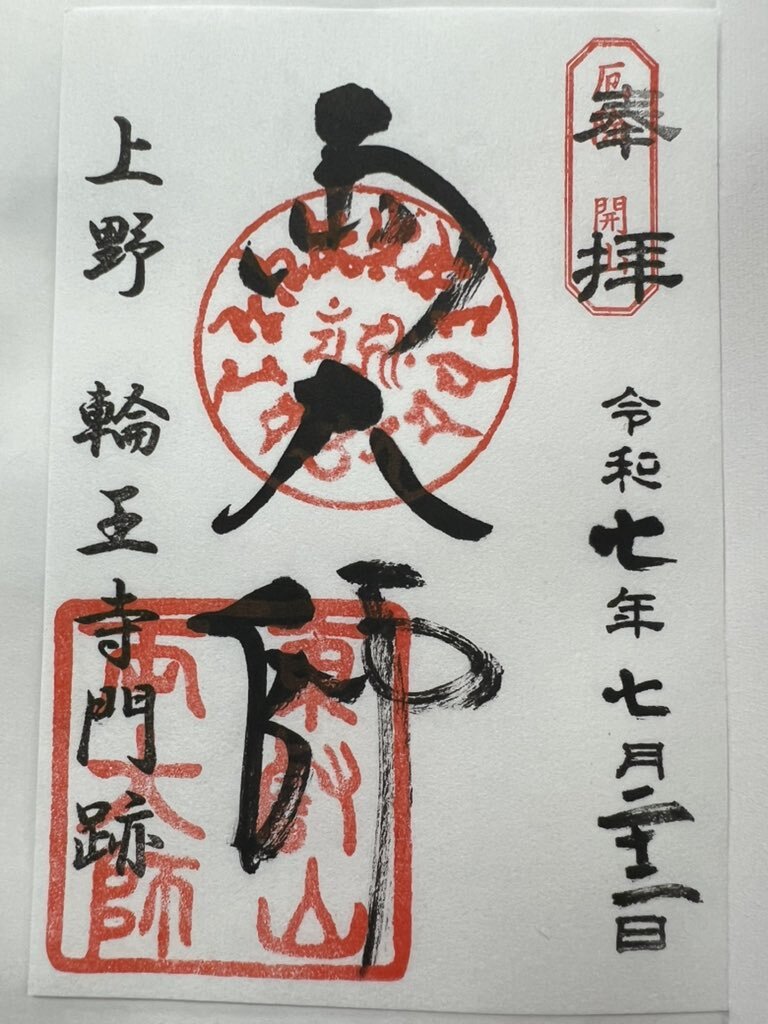 奉拝
令和七年七月二十二日
両大師
上野 輪王寺門跡
東叡山
両大師